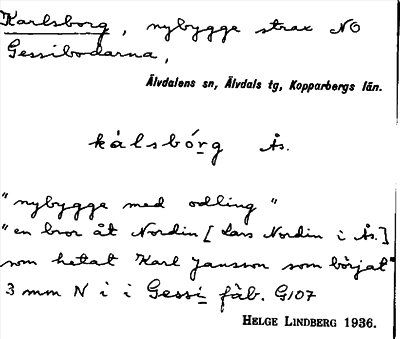 Karlsborg, nybygge strax NO
Gessibodarna,
Älvdalens sn, Älvdals tg, Kopparbergs län.
kålsbórg Ås.
"nybygge med odling"
"en bror åt Nordin [Lars Nordin i Ås.]
som hettat Karl Jansson som börjat"
3 mm N i i Gessi fäb. G107
HELGE LINDBERG 1936.